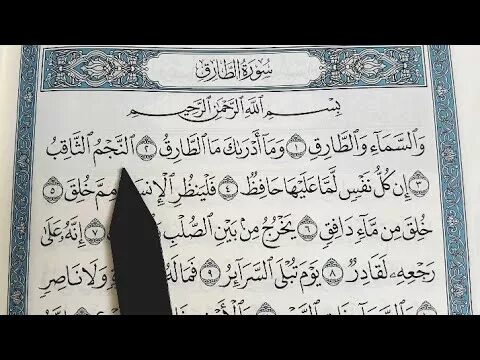 سُورَةُ الطَّارِقِ
بِسْمِ اللَّهِ الرَّحْمَٰنِ الرَّحِيمِ
وَالسَّمَآءِ وَالطَّارِقِ ١ وَمَآ أَدْرَىٰكَ مَا الطَّارِقُ ٢ النَّجْمُ الثَّاقِبُ
٣ إِن كُلُّ نَفْسٍ لَّمَّا عَلَيْهَا حَافِظٌ ٤ فَلْيَنظُرِ الْإِنسَ مِمَّ خُلِقَ ٥
خُلِقَ مِن مَّآءٍ دَافِقٍ ٦ يَخْرُجُ مِنۢ بَيْنِ الصُّلْبِ ٧ إِنَّهُۥ عَلَىٰ
رَجْعِهِۦ لَقَادِرٌ ٨ يَوْمَ تُبْلَى السَّرَآئِرُ ٩ فَمَا لَهُۥ وَلَا نَاصِرٍ